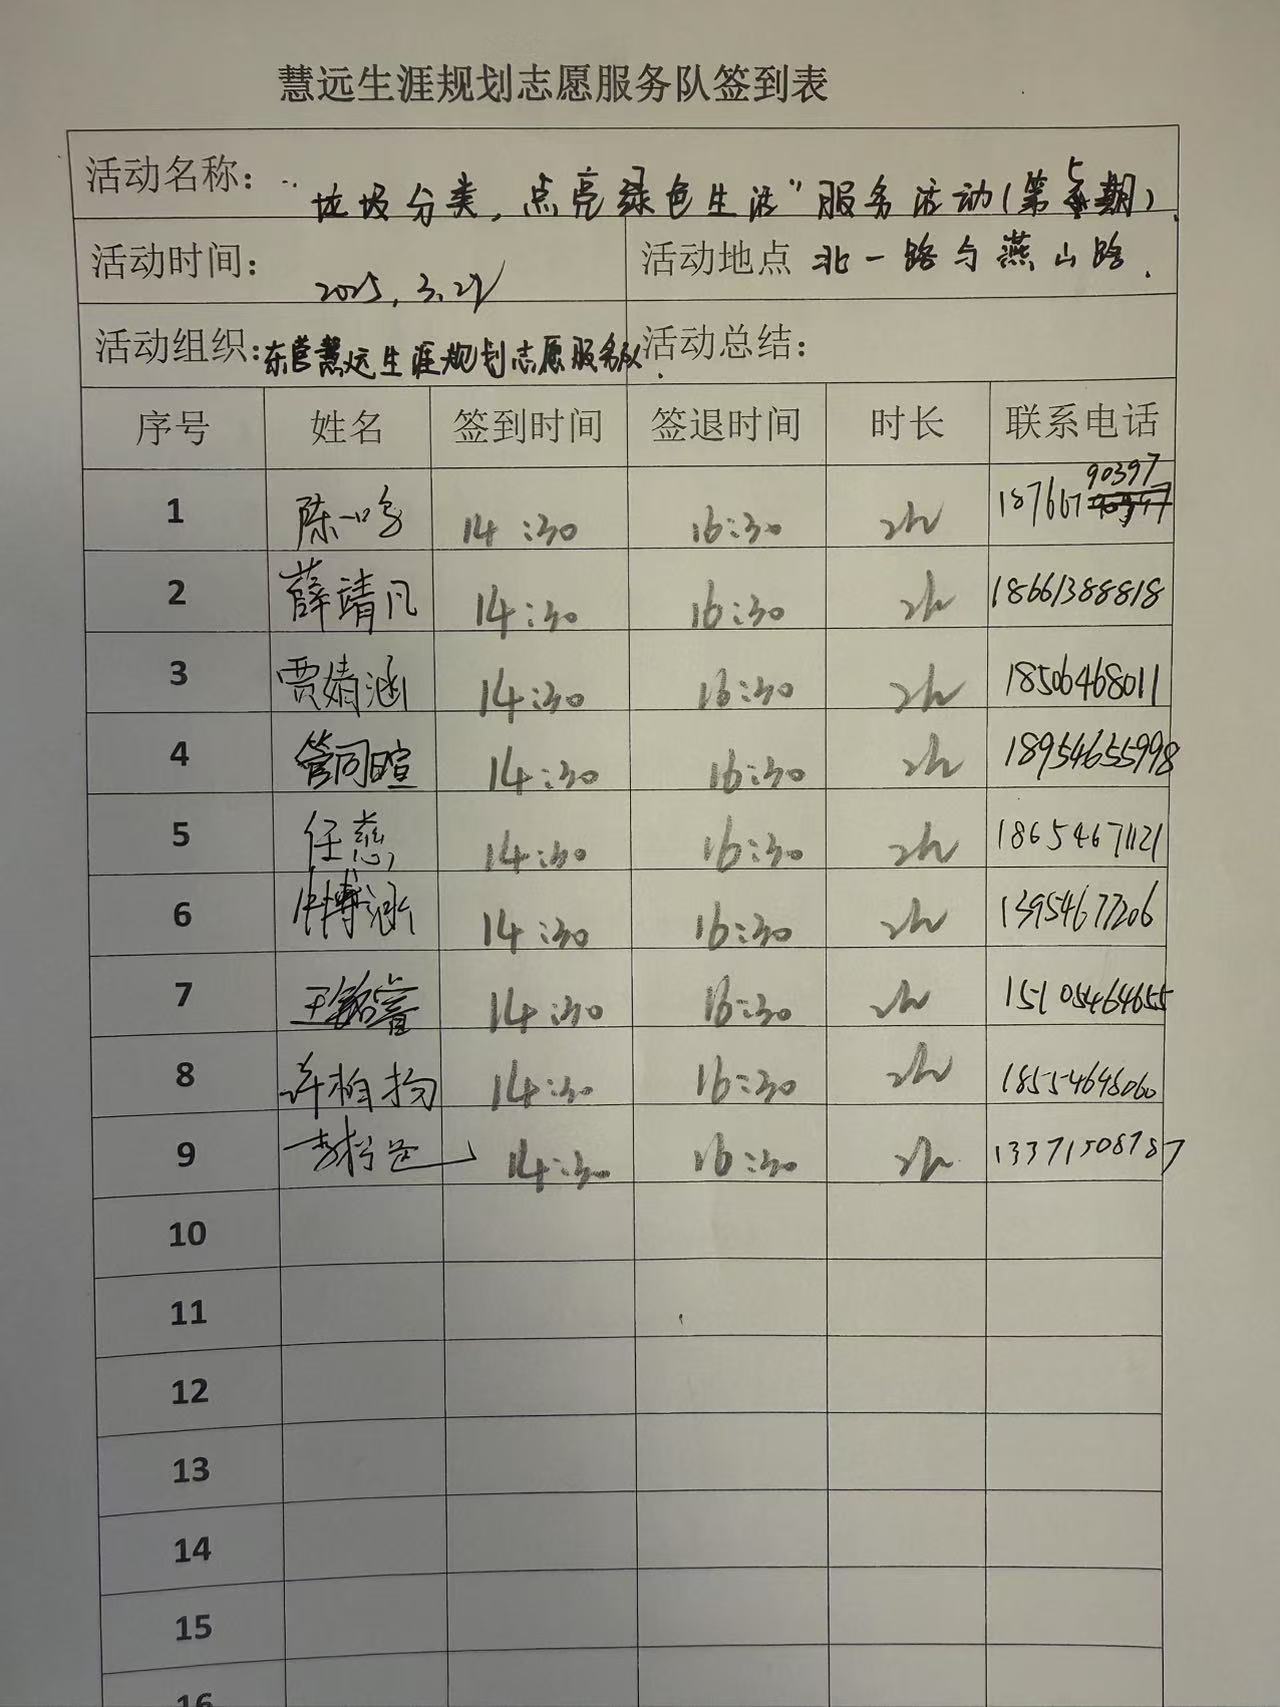 慧远生涯规划志愿服务队签到表
活动名称: 垃圾分类，点亮绿色生活”服务活动(第5期)
活动时间: 2025.3.29 活动地点 北一路与燕山路.
活动组织:东营慧远生涯规划志愿服务队. 活动总结:
序号 姓名 签到时间 签退时间 时长 联系电话
1 陈一鸣 14:30 16:30 2h 18766790397
2 薛靖凡 14:30 16:30 2h 18661388818
3 贾婧涵 14:30 16:30 2h 18506468011
4 管同暄 14:30 16:30 2h 18954655998
5 任慈 14:30 16:30 2h 18654671121
6 博涵 14:30 16:30 2h 13954677206
7 王铭睿 14:30 16:30 2h 15105464655
8 许柏扬 14:30 16:30 2h 18554648060
9 李 14:30 16:30 2h 13371508787
10
11
12
13
14
15
16